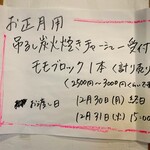 お正月用
吊るし炭火焼きチャーシュー受付
モモブロック 1本(計り売り)
(2500円~3000円くらいです
お渡し日 12月30日(月) 終日
12月31日(火) 15:00